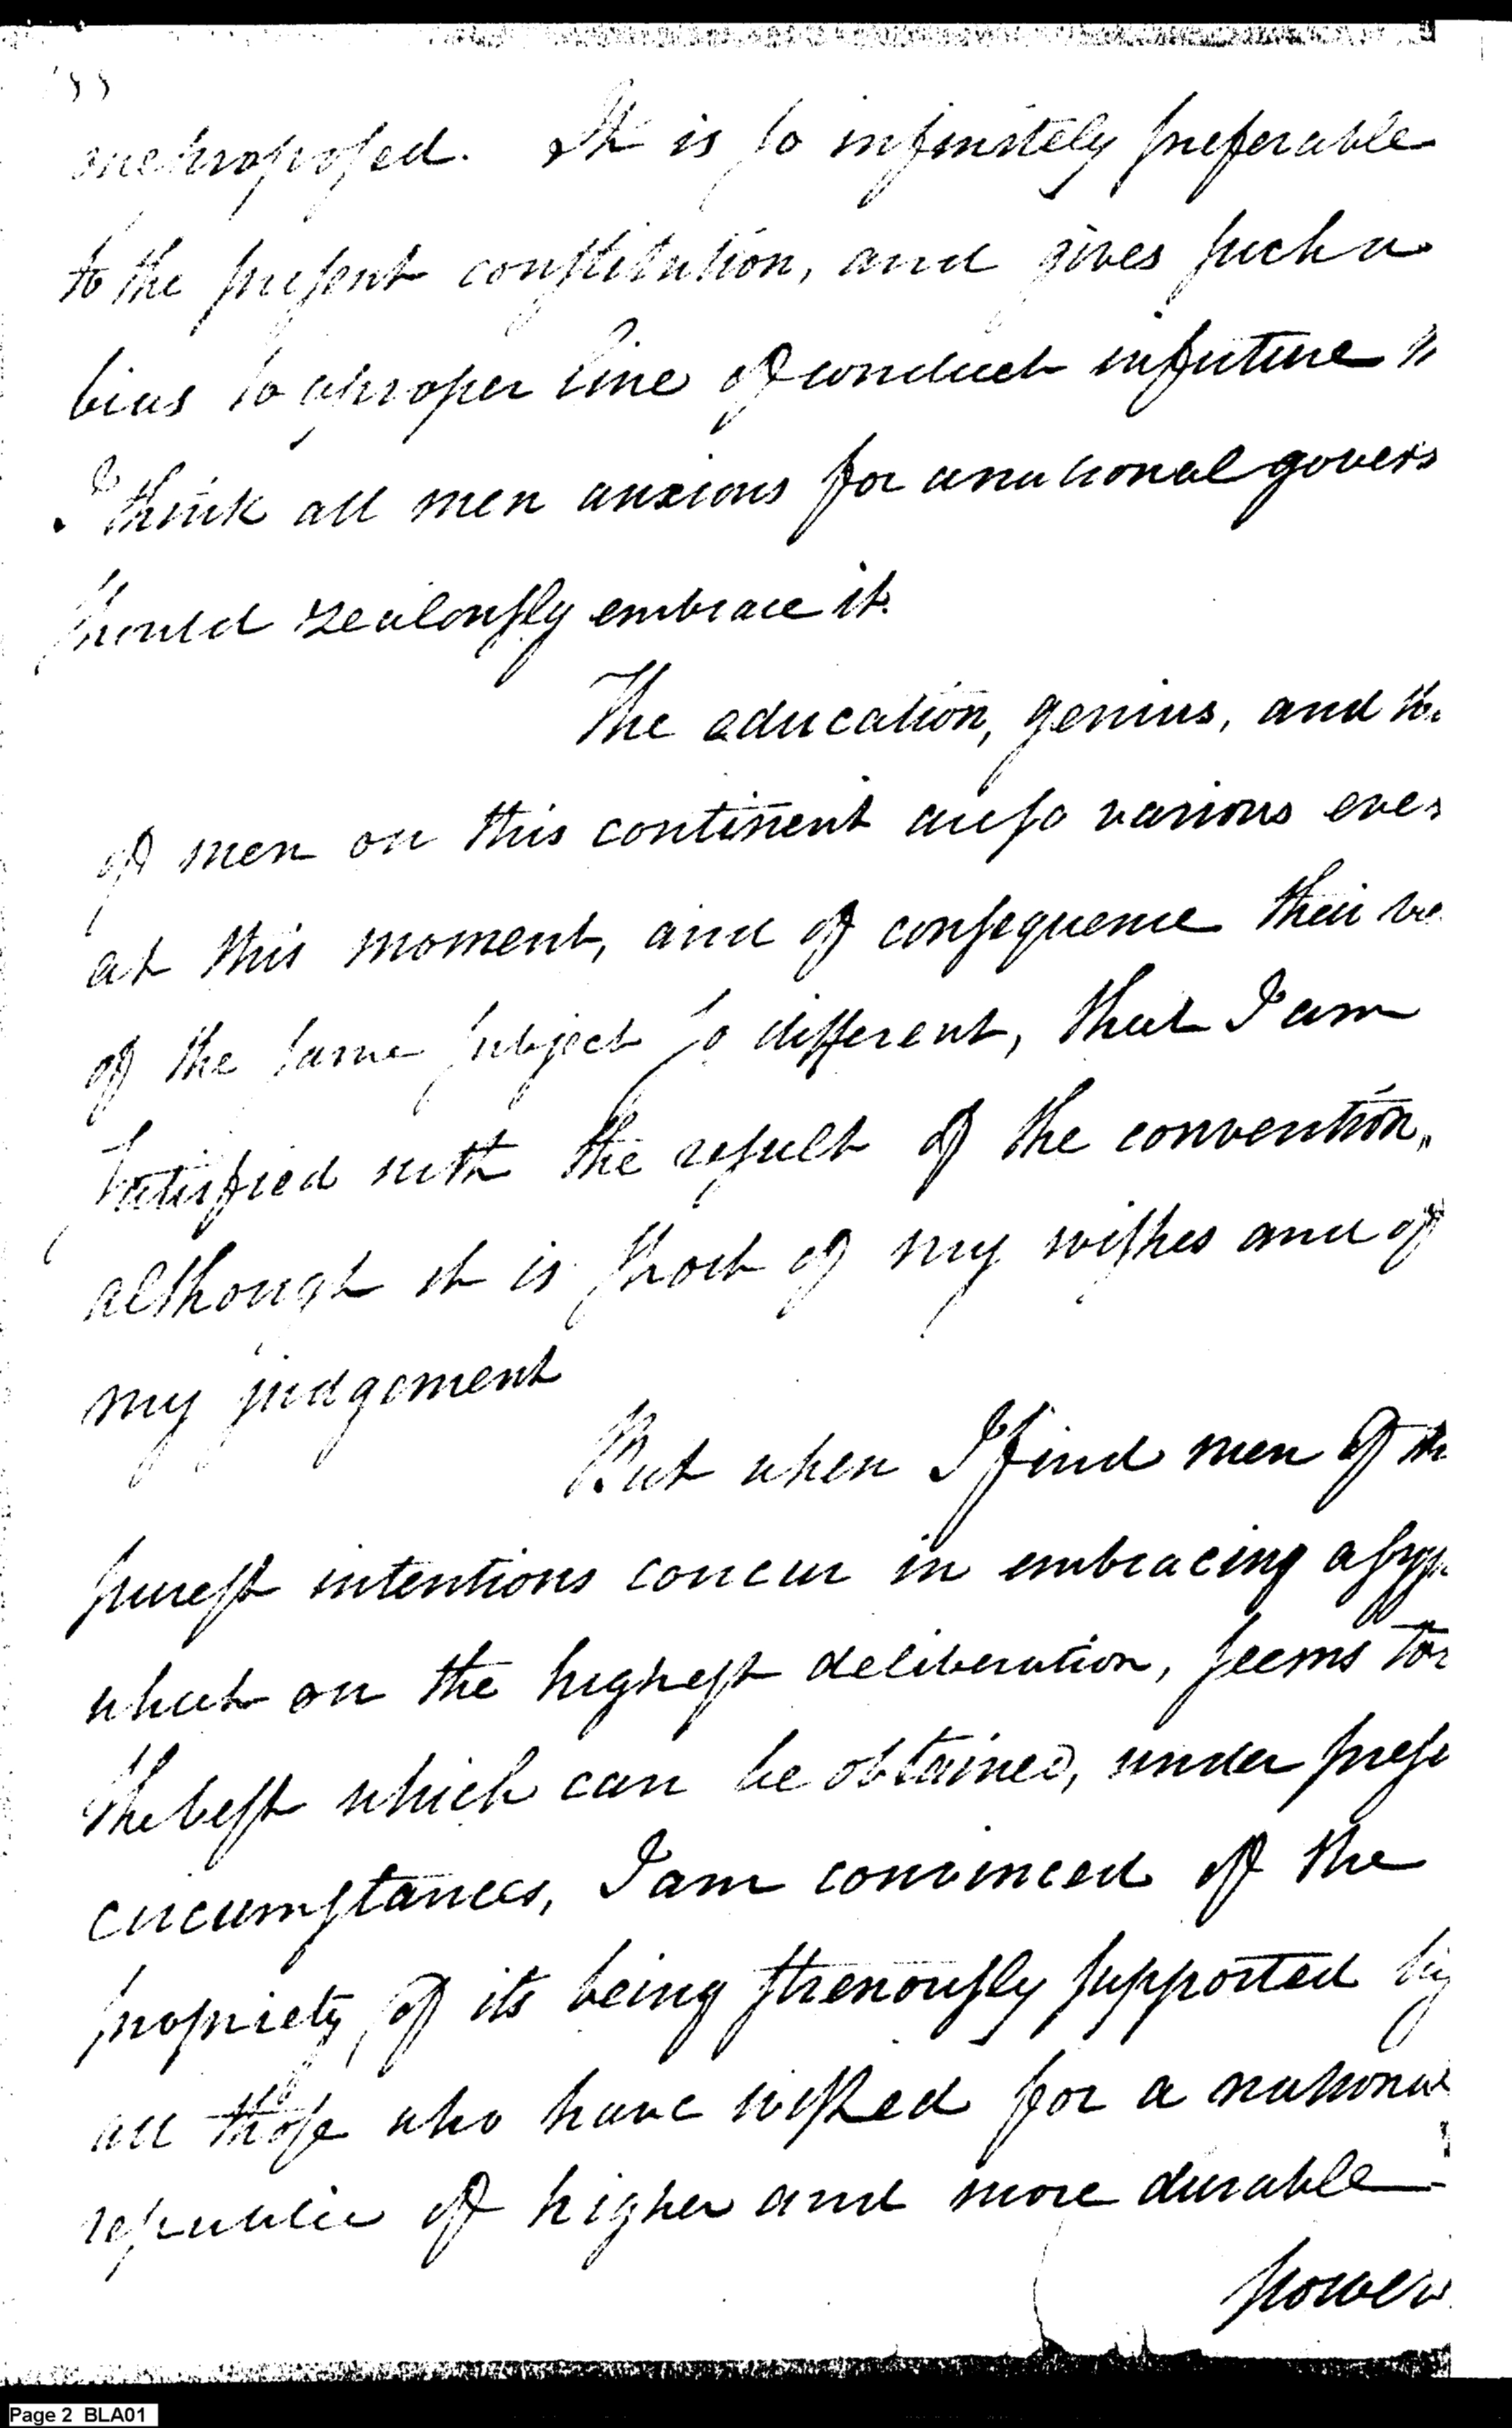 one proposed. It is so infinitely preferable
to the present constitution, and gives such a
bias to a proper line of conduct in future
I think all men anxious for a national govern
should zealously embrace it.
The education, genius, and
of men on this continent are so various even
at this moment, and of consequence their
of the same subject so different, that I am
satisfied with the result of the convention,
although it is short of my wishes and of
my judgement
But when I find men of the
purest intentions concur in embracing a
which on the highest deliberation, seems to
the best which can be obtained, under prese
circumstances, I am convinced of the
propriety of its being strenously supported by
all those who have wished for a national
republic of higher and more durable
powers
Page 2 BLA01